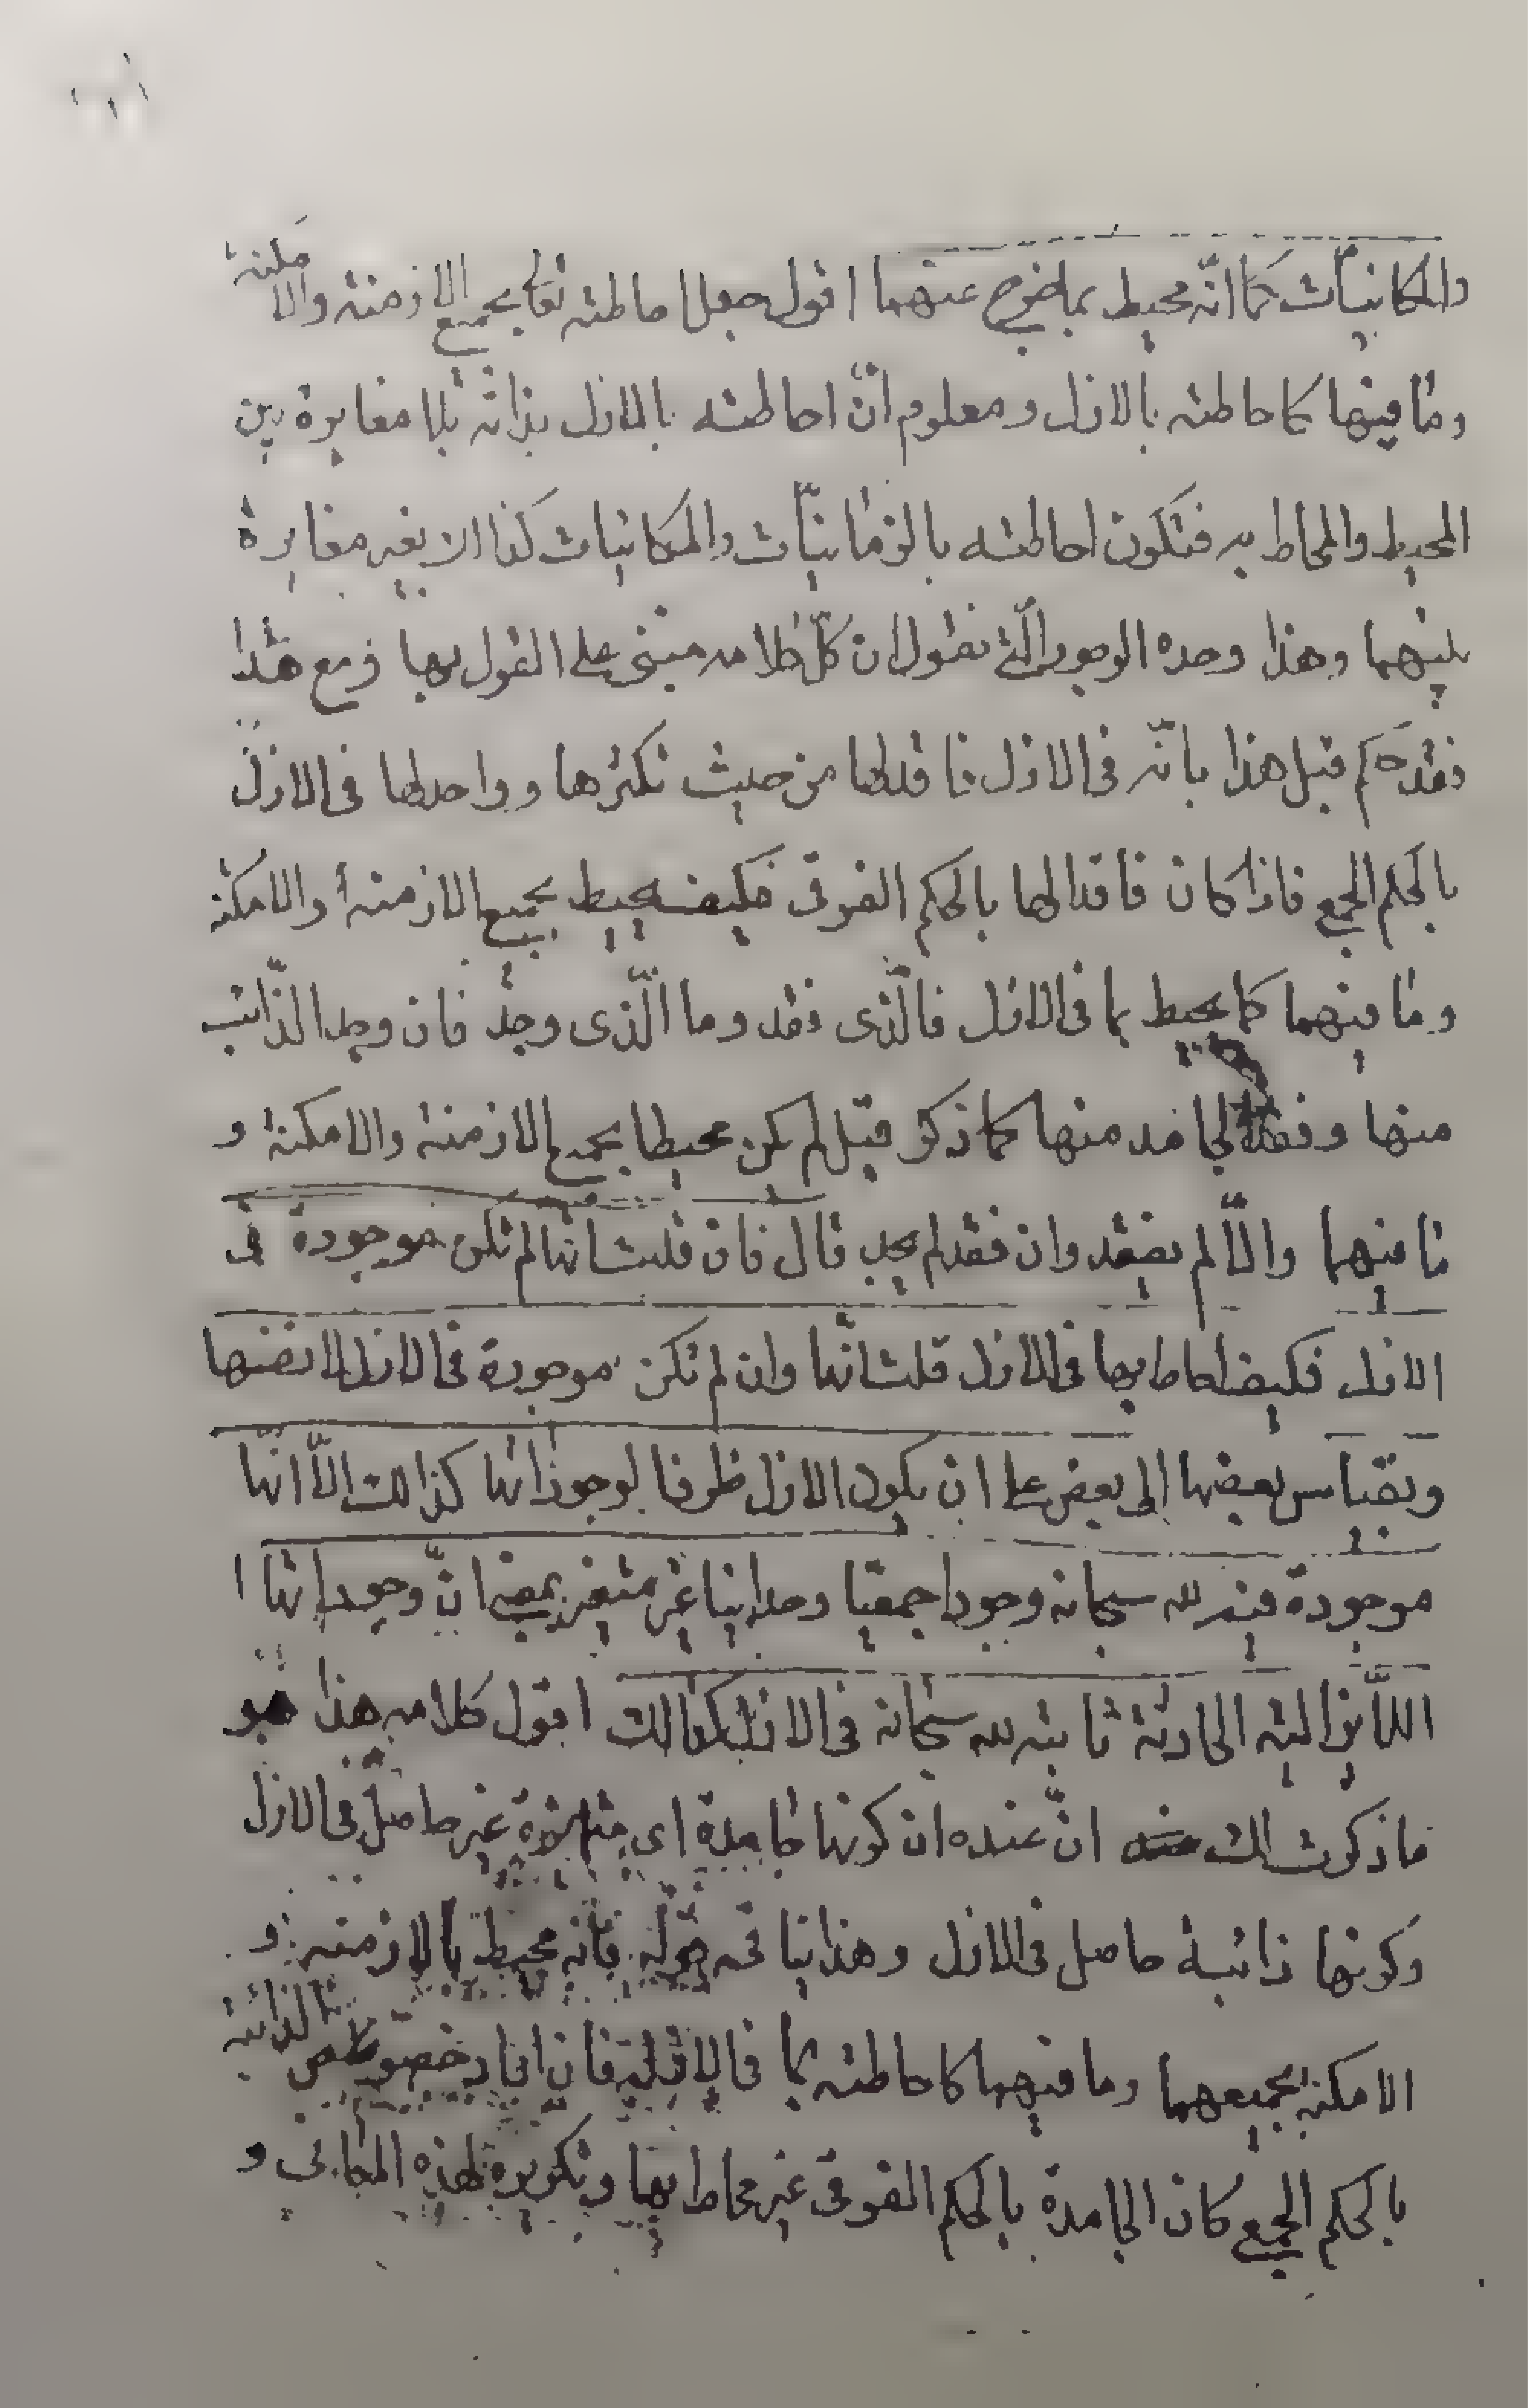 والمكانيّات كما انّه محيط بما خرج عنهما اقول جعل احاطته تعالى بجميع الازمنة والامكنة
وما فيها كاحاطته بالازل ومعلوم انّ احاطته بالازل بذاته بلا مغايرة بين
المحيط والمحاط به فتكون احاطته بالزمانيّات والمكانيات كذا لا بغير مغايرة
بينهما وهذا وحدة الوجود الّتي نقول ان كلّ كلامه مبتنى على القول بها ومع هذا
فقد حكم قبل هذا بانّه فى الازل فاقد لها من حيث تكثرها وواجد لها فى الازل
بالحكم الجمع فاذا كان فاقدا لها بالحكم الفرقى فكيف يحيط بجميع الازمنة والامكنة
وما فيهما كما يحيط بما فى الازل فالّذى فقد وما الّذى وجد فان وجد الذّائب
منها وفقد الجامد منها كما ذكر قبل لم يكن محيطا بجميع الازمنة والامكنة و
ما فيهما والّا لم يفقد وان فقد لم يجد قال فان قلت انها لم تكن موجودة فى
الازل فكيف احاط بها فى الازل قلت انّها وان لم تكن موجودة فى الازل لانفسها
وبقياس بعضها الى بعض على ان يكون الازل ظرفا لوجوداتها كذالك الّا انّها
موجودة فيه لله سبحانه وجودا جمعيّا وحدانيا غير متغير بمعنى انّ وجوداتها ا
اللّايزالية الحادثة ثابتة لله سبحانه فى الازل كذالك اقول كلامه هذا هو
ما ذكرت لك انّ عنده ان كونها جامدة اى متميزة غير حاصل فى الازل
وكونها ذائبة حاصل فى الازل وهذا ينافى قوله فانه محيط بالازمنة و
الامكنة بجميعهما وما فيهما كاحاطته بما فى الازل فان اراد خصوص الذائبة
بالحكم الجمع كان الجامدة بالحكم الفرقى غير محاط بها وتكريره لهذه المعانى و